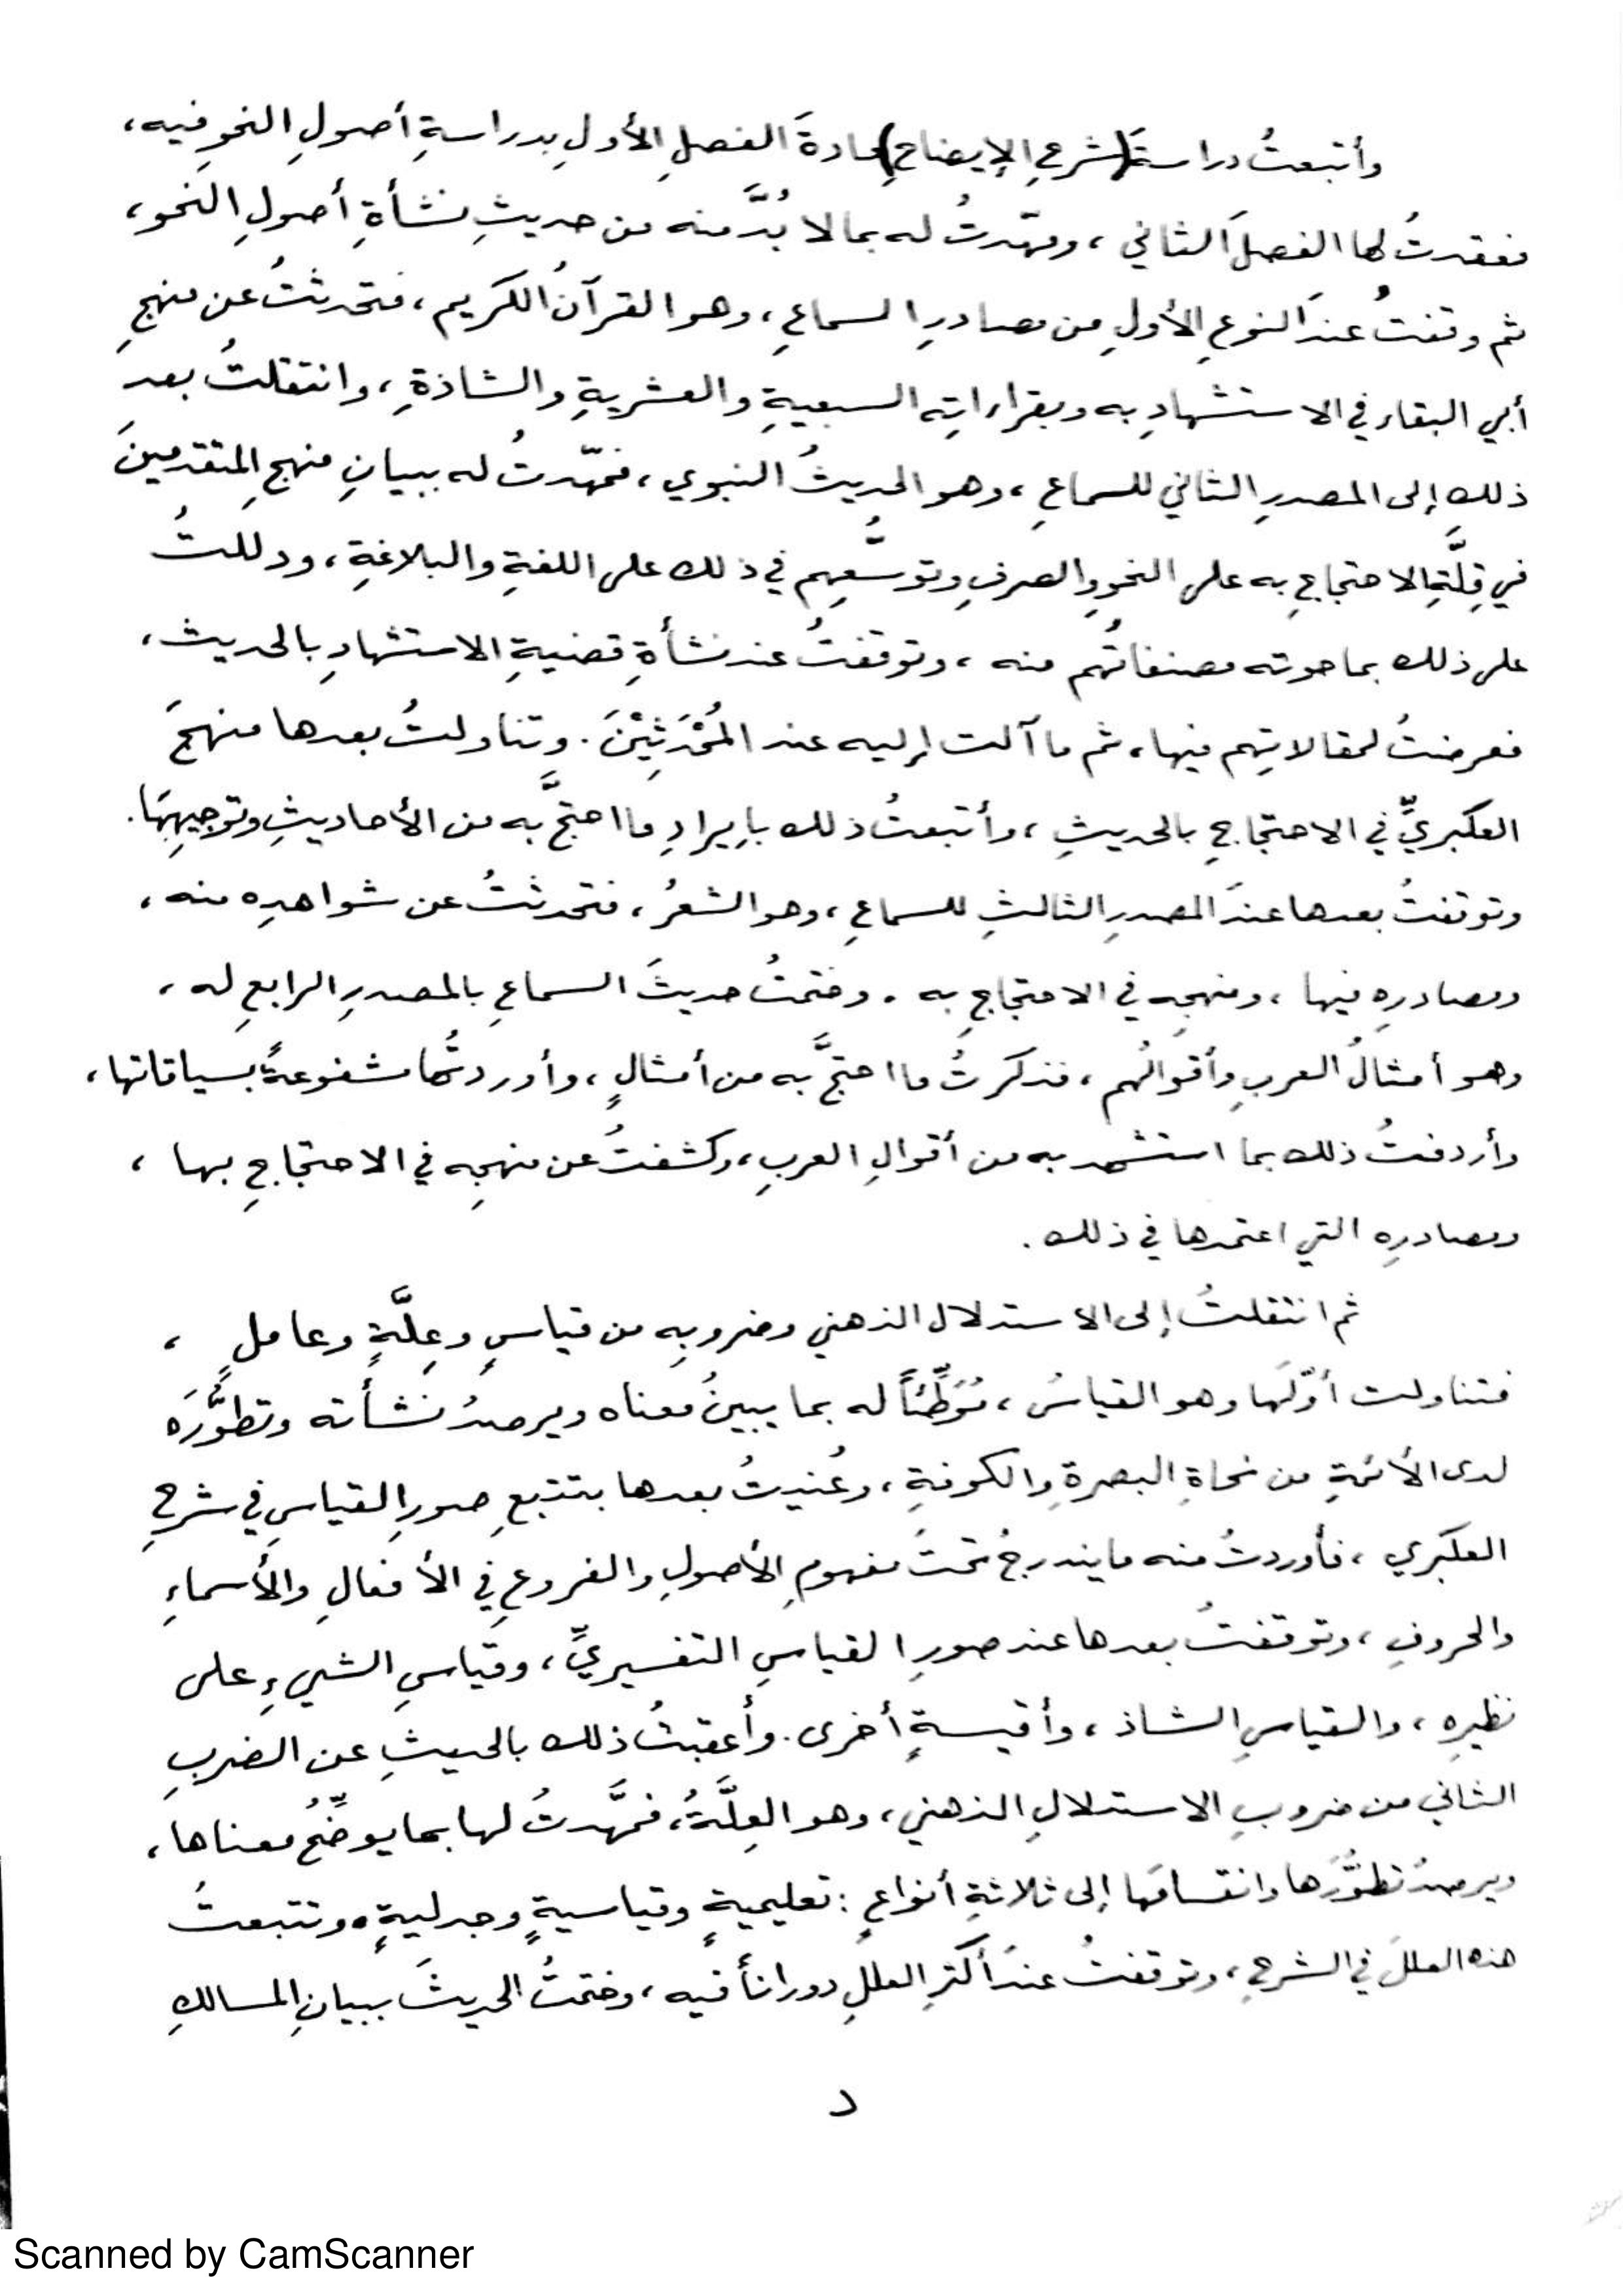 وأتبعتُ دراسةَ (شرحِ الإيضاحِ) مادةَ الفصلِ الأولِ بدراسةِ أصولِ النحوِ فيه،
فعقدتُ لها الفصلَ الثاني، ومهّدتُ له بما لا بُدَّ منه من حديثِ نشأةِ أصولِ النحو،
ثم وقفتُ عندَ النوعِ الأولِ من مصادرِ السماعِ، وهو القرآنُ الكريم، فتحدثتُ عن منهجِ
أبي البقاء في الاستشهادِ به وبقراءاتِه السبعيةِ والعشريةِ والشاذةِ، وانتقلتُ بعد
ذلك إلى المصدرِ الثاني للسماعِ، وهو الحديثُ النبوي، فمهّدتُ له ببيانِ منهجِ المتقدمينَ
في قِلَّةِ الاحتجاجِ به على النحوِ والصرفِ وتوسُّعِهم في ذلك على اللغةِ والبلاغةِ، ودللتُ
على ذلك بما حوته مصنفاتُهم منه، وتوقفتُ عند نشأةِ قضيةِ الاستشهادِ بالحديث،
فعرضتُ لمقالاتِهم فيها، ثم ما آلت إليه عند المُحْدَثِيْنَ. وتناولتُ بعدها منهجَ
العكبريِّ في الاحتجاجِ بالحديثِ، وأتبعتُ ذلك بإيرادِ ما احتجَّ به من الأحاديثِ وتوجيهِها.
وتوقفتُ بعدها عندَ المصدرِ الثالثِ للسماعِ، وهو الشعرُ، فتحدثتُ عن شواهدِه منه،
ومصادرِه فيها، ومنهجِه في الاحتجاجِ به. وختمتُ حديثَ السماعِ بالمصدرِ الرابعِ له،
وهو أمثالُ العربِ وأقوالُهم، فذكرتُ ما احتجَّ به من أمثالٍ، وأوردتُها مشفوعةً بسياقاتها،
وأردفتُ ذلك بما استشهد به من أقوالِ العربِ، وكشفتُ عن منهجِه في الاحتجاجِ بها،
ومصادرِه التي اعتمدها في ذلك.
ثم انتقلتُ إلى الاستدلال الذهني وضروبِه من قياسٍ وعِلَّةٍ وعاملٍ،
فتناولت أوّلَها وهو القياسُ، مُوَطِّئاً له بما يبينُ معناه ويرصدُ نشأته وتطوُّرَه
لدى الأئمةِ من نحاةِ البصرةِ والكوفةِ، وعُنيتُ بعدها بتتبعِ صورِ القياسِ في شرحِ
العكبري، فأوردتُ منه ما يندرجُ تحتَ مفهومِ الأصولِ والفروعِ في الأفعالِ والأسماءِ
والحروفِ، وتوقفتُ بعدها عند صورِ القياسِ التفسيريِّ، وقياسِ الشيءِ على
نظيرِه، والقياسِ الشاذ، وأقيسةٍ أخرى. وأعقبتُ ذلك بالحديثِ عن الضربِ
الثاني من ضروبِ الاستدلالِ الذهني، وهو العِلَّةُ، فمهَّدتُ لها بما يوضِّحُ معناها،
ويرصدُ تطوُّرَها وانقسامَها إلى ثلاثةِ أنواعٍ: تعليميةٍ وقياسيةٍ وجدليةٍ، وتتبعتُ
هذه العللَ في الشرحِ، وتوقفتُ عندَ أكثرِ العللِ دوراناً فيه، وختمتُ الحديثَ ببيانِ المسالكِ
د
Scanned by CamScanner